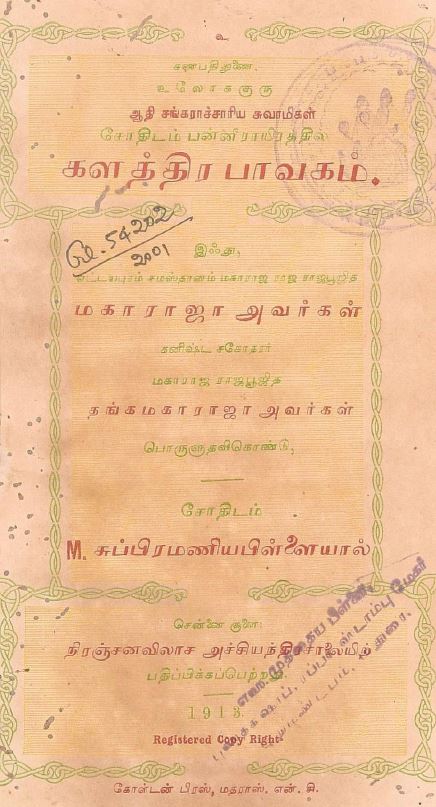 உ
கணபதிதுணை.
உலோககுரு
ஆதி சங்கராச்சாரிய சுவாமிகள்
சோதிடம் பன்னீராயிரத்தில்
களத்திர பாவகம்.
54202
2001
இஃது,
எட்டயபுரம் சமஸ்தானம் மகாராஜ ராஜ ராஜபூஜித
மகாராஜா அவர்கள்
கனிஷ்ட சகோதரர்
மகாராஜ ராஜபூஜித
தங்கமகாராஜா அவர்கள்
பொருளுதவிகொண்டு,
சோதிடம்
M. சுப்பிரமணியபிள்ளையால்
சென்னை சூளை:
நிரஞ்சனவிலாச அச்சியந்திரசாலையிற்
பதிப்பிக்கப்பெற்றது.
1913
Registered Copy Right.
கோல்டன் பிரஸ், மதராஸ். என். சி.